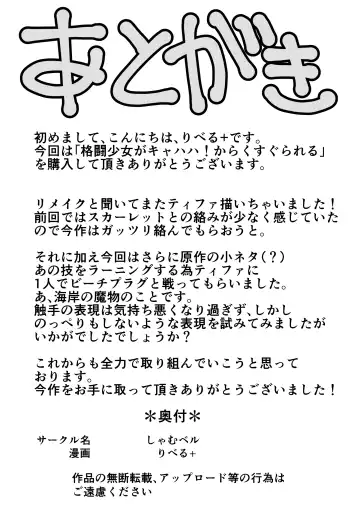 あとがき
初めまして、こんにちは、りべる+です。
今回は「格闘少女がキャハハ！からくすぐられる」
を購入して頂きありがとうございます。
リメイクと聞いてまたティファ描いちゃいました！
前回ではスカーレットとの絡みが少なく感じていた
ので今作はガッツリ絡んでもらおうと。
それに加え今回はさらに原作の小ネタ（？）
あの技をラーニングする為ティファに
1人でビーチプラグと戦ってもらいました。
あ、海岸の魔物のことです。
触手の表現は気持ち悪くなり過ぎず、しかし
のっぺりもしないような表現を試みてみましたが
いかがでしたでしょうか？
これからも全力で取り組んでいこうと思って
おります。
今作をお手に取って頂きありがとうございました！
＊奥付＊
サークル名 しゃむベル
漫画 りべる+
作品の無断転載、アップロード等の行為は
ご遠慮ください